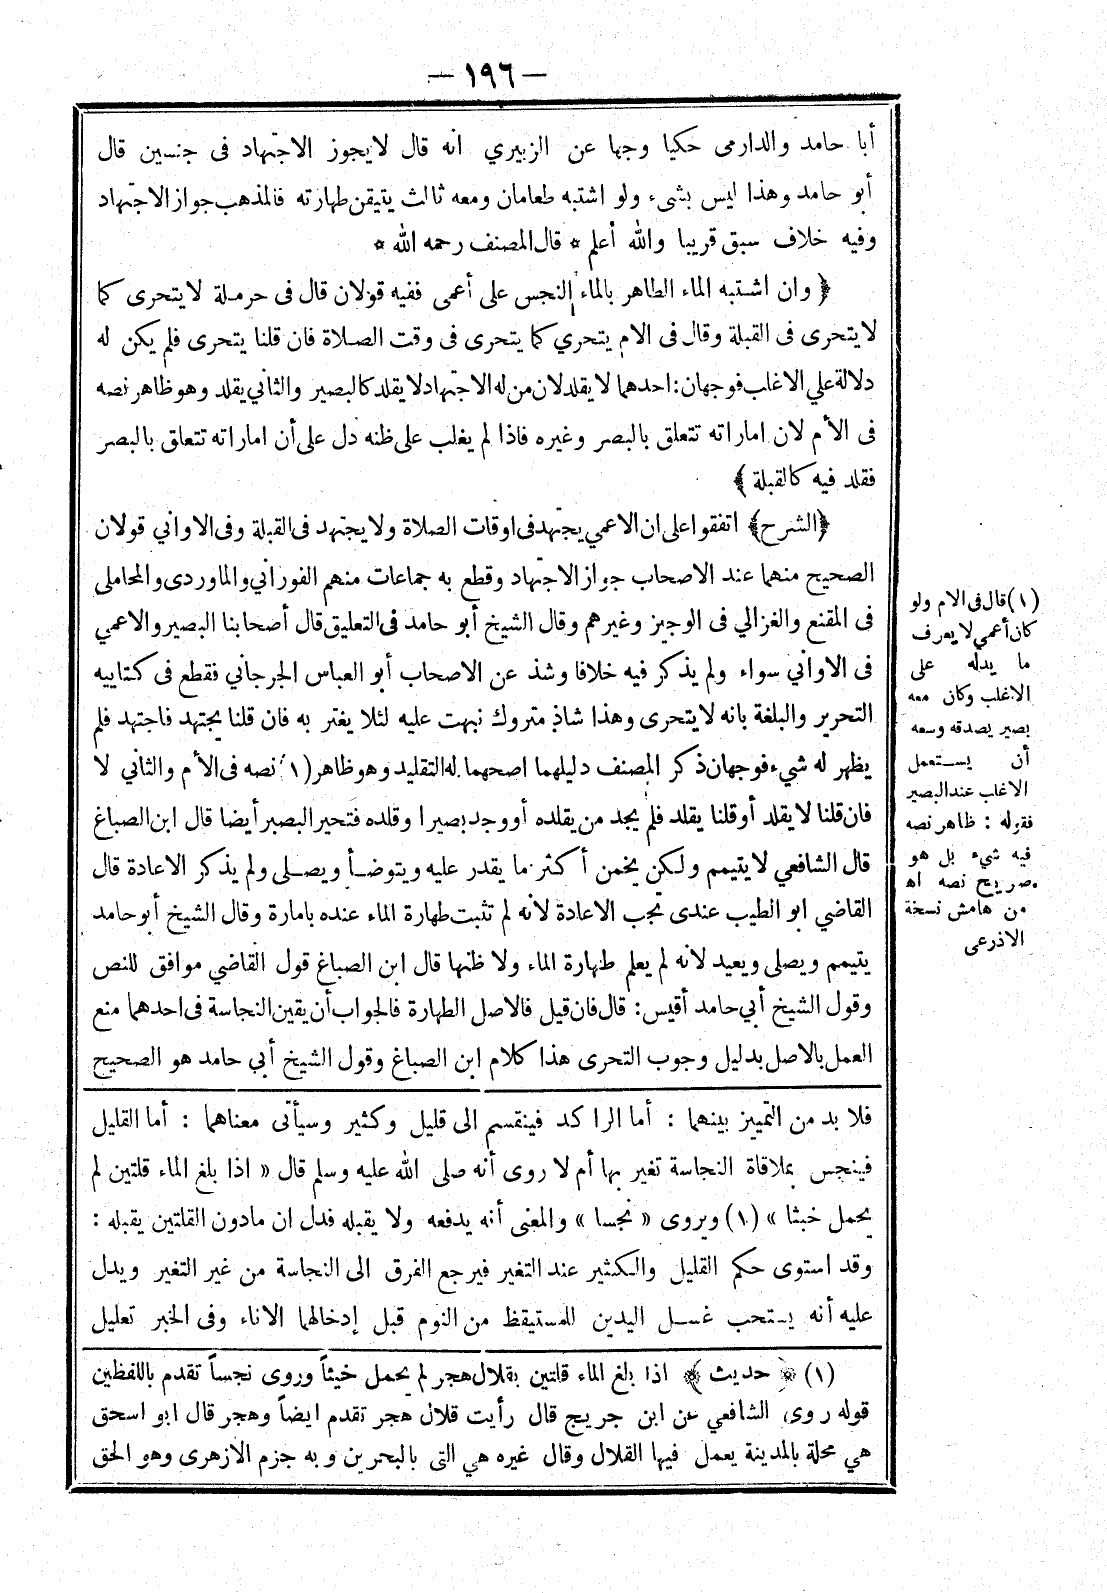 — ١٩٦ —
أبا حامد والدارمى حكيا وجها عن الزبيري انه قال لايجوز الاجتهاد فى جنسين قال
أبو حامد وهذا ليس بشىء ولو اشتبه طعامان ومعه ثالث يتيقن طهارته فالمذهب جواز الاجتهاد
وفيه خلاف سبق قريبا والله أعلم * قال المصنف رحمه الله *
﴿ وان اشتبه الماء الطاهر بالماء النجس على أعمى ففيه قولان قال فى حرملة لايتحرى كما
لايتحرى فى القبلة وقال فى الام يتحري كما يتحرى فى وقت الصلاة فان قلنا يتحرى فلم يكن له
دلالة علي الاغلب فوجهان : احدهما لايقلد لان من له الاجتهاد لايقلد كالبصير والثاني يقلد وهو ظاهر نصه
فى الأم لان اماراته تتعلق بالبصر وغيره فاذا لم يغلب على ظنه دل على أن اماراته تتعلق بالبصر
فقلد فيه كالقبلة ﴾
﴿الشرح﴾ اتفقوا على ان الاعمي يجتهد فى اوقات الصلاة ولا يجتهد فى القبلة وفى الاواني قولان
الصحيح منهما عند الاصحاب جواز الاجتهاد وقطع به جماعات منهم الفوراني والماوردى والمحاملى
فى المقنع والغزالي فى الوجيز وغيرهم وقال الشيخ أبو حامد فى التعليق قال أصحابنا البصير والاعمي
فى الاواني سواء ولم يذكر فيه خلافا وشذ عن الاصحاب أبو العباس الجرجاني فقطع فى كتابيه
التحرير والبلغة بانه لايتحرى وهذا شاذ متروك نبهت عليه لئلا يغتر به فان قلنا يجتهد فاجتهد فلم
يظهر له شيء فوجهان ذكر المصنف دليلهما اصحهما له التقليد وهو ظاهر (١) نصه فى الأم والثاني لا
فان قلنا لايقلد أو قلنا يقلد فلم يجد من يقلده أو وجد بصيرا وقلده فتحير البصير أيضا قال ابن الصباغ
قال الشافعي لايتيمم ولكن يخمن أكثر ما يقدر عليه ويتوضأ ويصلى ولم يذكر الاعادة قال
القاضي ابو الطيب عندى تجب الاعادة لأنه لم تثبت طهارة الماء عنده بامارة وقال الشيخ أبو حامد
يتيمم ويصلى ويعيد لانه لم يعلم طهارة الماء ولا ظنها قال ابن الصباغ قول القاضي موافق للنص
وقول الشيخ أبي حامد أقيس : قال فان قيل فالاصل الطهارة فالجواب أن يقين النجاسة فى احدهما منع
العمل بالاصل بدليل وجوب التحرى هذا كلام ابن الصباغ وقول الشيخ أبي حامد هو الصحيح
(١) قال فى الام ولو
كان أعمي لا يعرف
ما يدله على
الاغلب وكان معه
بصير يصدقه وسعه
أن يستعمل
الاغلب عند البصير
فقوله : ظاهر نصه
فيه شيء بل هو
صريح نصه اه
من هامش نسخة
الاذرعى
فلا بد من التمييز بينهما : أما الراكد فينقسم الى قليل وكثير وسيأتى معناهما : أما القليل
فينجس بملاقاة النجاسة تغير بها أم لا روى أنه صلى الله عليه وسلم قال « اذا بلغ الماء قلتين لم
يحمل خبثا » (١) ويروى « نجسا » والمعنى أنه يدفعه ولا يقبله فدل ان مادون القلتين يقبله :
وقد استوى حكم القليل والكثير عند التغير فيرجع الفرق الى النجاسة من غير التغير ويدل
عليه أنه يستحب غسل اليدين للمستيقظ من النوم قبل إدخالهما الاناء وفى الخبر تعليل
(١) ﴿ حديث ﴾ اذا بلغ الماء قلتين بقلال هجر لم يحمل خبثاً وروى نجساً تقدم باللفظين
قوله روى الشافعي عن ابن جريج قال رأيت قلال هجر تقدم ايضاً وهجر قال ابو اسحق
هي محلة بالمدينة يعمل فيها القلال وقال غيره هي التى بالبحرين وبه جزم الازهرى وهو الحق